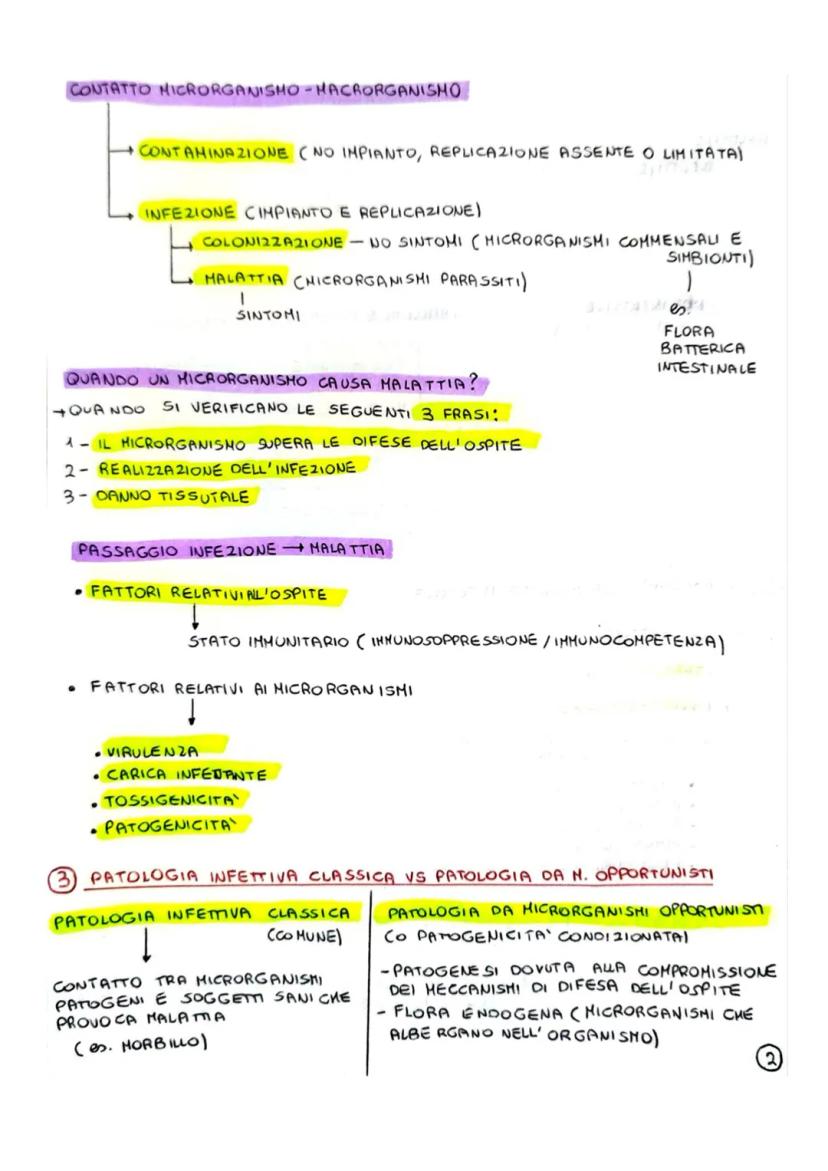 CONTATTO MICRORGANISMO - MACRORGANISMO
→ CONTAMINAZIONE (NO IMPIANTO, REPLICAZIONE ASSENTE O LIMITATA)
→ INFEZIONE (IMPIANTO E REPLICAZIONE)
→ COLONIZZAZIONE - NO SINTOMI (MICRORGANISMI COMMENSALI E
SIMBIONTI)
→ MALATTIA (MICRORGANISMI PARASSITI)
SINTOMI
es.
FLORA
BATTERICA
INTESTINALE
QUANDO UN MICRORGANISMO CAUSA MALATTIA?
→ QUANDO SI VERIFICANO LE SEGUENTI 3 FRASI:
1 - IL MICRORGANISMO SUPERA LE DIFESE DELL'OSPITE
2 - REALIZZAZIONE DELL'INFEZIONE
3 - DANNO TISSUTALE
PASSAGGIO INFEZIONE → MALATTIA
• FATTORI RELATIVI ALL'OSPITE
STATO IMMUNITARIO (IMMUNOSOPPRESSIONE / IMMUNOCOMPETENZA)
• FATTORI RELATIVI AI MICRORGANISMI
• VIRULENZA
• CARICA INFETTANTE
• TOSSIGENICITA'
• PATOGENICITA'
3 PATOLOGIA INFETTIVA CLASSICA VS PATOLOGIA DA M. OPPORTUNISTI
PATOLOGIA INFETTIVA CLASSICA
(COMUNE)
CONTATTO TRA MICRORGANISMI
PATOGENI E SOGGETTI SANI CHE
PROVOCA MALATTIA
(es. MORBILLO)
PATOLOGIA DA MICRORGANISMI OPPORTUNISTI
(O PATOGENICITA' CONDIZIONATA)
- PATOGENESI DOVUTA ALLA COMPROMISSIONE
DEI MECCANISMI DI DIFESA DELL'OSPITE
- FLORA ENDOGENA (MICRORGANISMI CHE
ALBERGANO NELL'ORGANISMO)
2